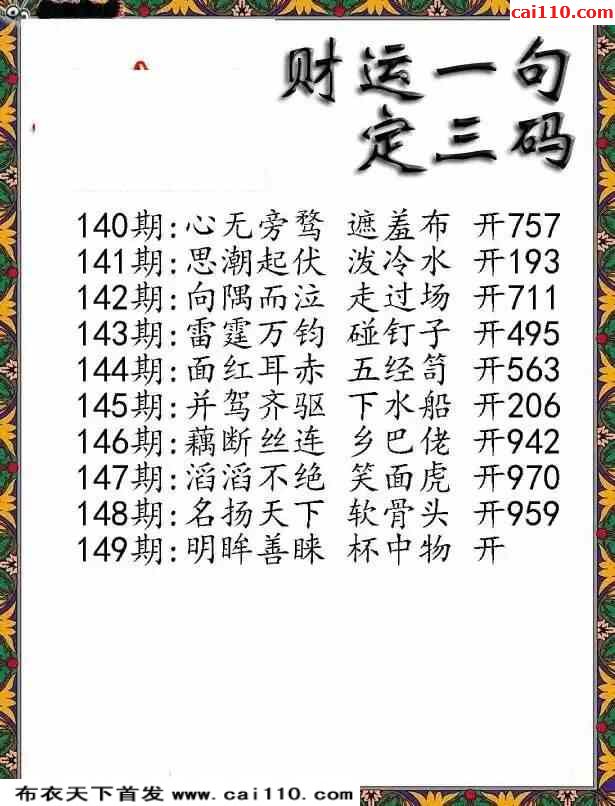 cai110.com
财运一句
定三码
140期:心无旁骛 遮羞布 开757
141期:思潮起伏 泼冷水 开193
142期:向隅而泣 走过场 开711
143期:雷霆万钧 碰钉子 开495
144期:面红耳赤 五经笥 开563
145期:并驾齐驱 下水船 开206
146期:藕断丝连 乡巴佬 开942
147期:滔滔不绝 笑面虎 开970
148期:名扬天下 软骨头 开959
149期:明眸善睐 杯中物 开
布衣天下首发 www.cai110.com